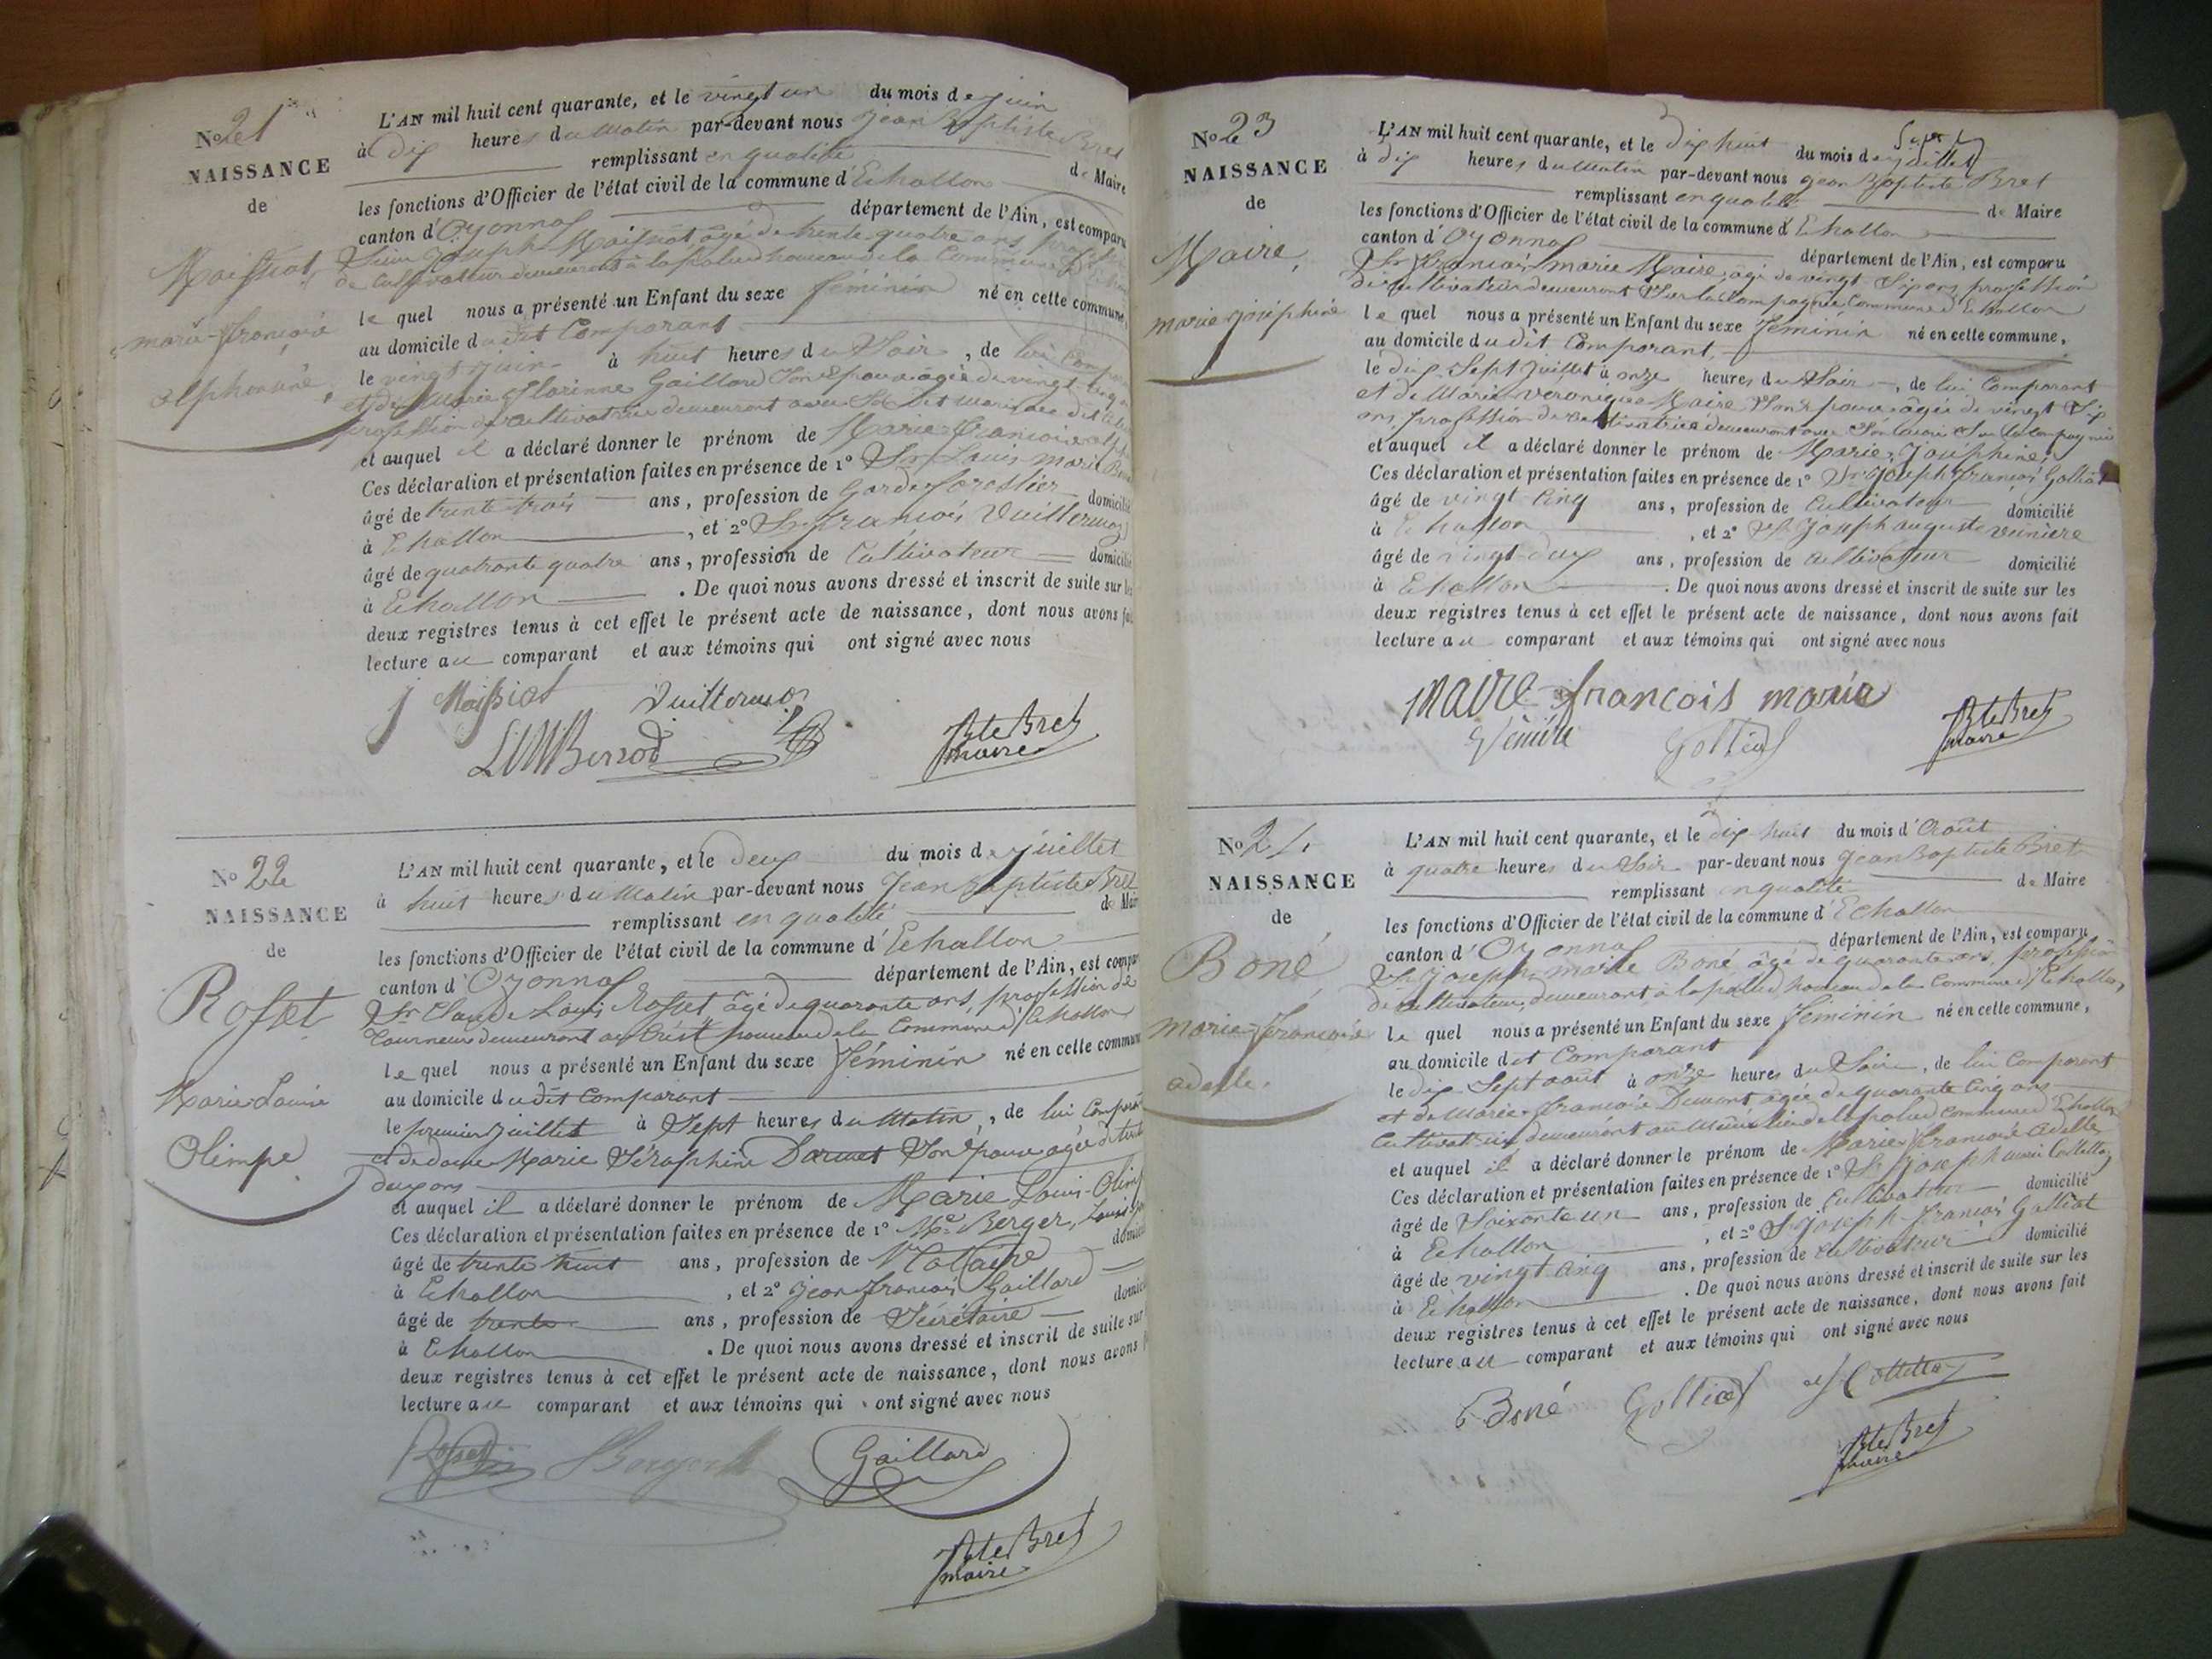 No 21
NAISSANCE
de
Maissiat
marie-françoise
alphonsine
L'AN mil huit cent quarante, et le vingt un du mois de juin
à dix heures du Matin par-devant nous Jean Baptiste Bret
remplissant en qualité de Maire
les fonctions d'Officier de l'état civil de la commune d'Echallon
canton d'Oyonnax département de l'Ain, est comparu
Sieur Joseph Maissiat, âgé de trente quatre ans, profession
de Cultivateur demeurant à la palud hameau de la Commune d'Echallon
le quel nous a présenté un Enfant du sexe féminin né en cette commune,
au domicile du dit Comparant
le vingt juin à huit heures du Soir, de lui Comparant
et de Marie Florinne Gaillard Son Epouse âgée de vingt
profession de Cultivatrice demeurant avec Son dit mari
et auquel il a déclaré donner le prénom de Marie françoise
Ces déclaration et présentation faites en présence de 1º Sr Louis marie
âgé de trente trois ans, profession de Garde forestier domicilié
à Echallon, et 2º Sr françois Vuillermoz
âgé de quatrante quatre ans, profession de Cultivateur domicilié
à Echallon. De quoi nous avons dressé et inscrit de suite sur les
deux registres tenus à cet effet le présent acte de naissance, dont nous avons fait
lecture au comparant et aux témoins qui ont signé avec nous
J Maissiat Vuillermoz
LM Berrod
Bte Bret
maire
No 22
NAISSANCE
de
Rosset
Marie Louise
Olimpe
L'AN mil huit cent quarante, et le deux du mois de juillet
à huit heures du Matin par-devant nous Jean Baptiste Bret
remplissant en qualité de Maire
les fonctions d'Officier de l'état civil de la commune d'Echallon
canton d'Oyonnax département de l'Ain, est comparu
Sr Claude Louis Rosset, âgé de quarante ans, profession de
Tourneur demeurant au Crêt hameau de la Commune d'Echallon
le quel nous a présenté un Enfant du sexe féminin né en cette commune
au domicile du dit Comparant
le premier juillet à Sept heures du Matin, de lui Comparant
et de dame Marie Séraphine Darmet Son Epouse agée de trente
deux ans
et auquel il a déclaré donner le prénom de Marie Louis-Olimpe
Ces déclaration et présentation faites en présence de 1º Me Berger, Louis
âgé de trente huit ans, profession de Notaire domicilié
à Echallon, et 2º Jean françois Gaillard
âgé de trente ans, profession de Sécrétaire domicilié
à Echallon. De quoi nous avons dressé et inscrit de suite sur
deux registres tenus à cet effet le présent acte de naissance, dont nous avons
lecture au comparant et aux témoins qui ont signé avec nous
Rosset Berger Gaillard
Bte Bret
maire
No 23
NAISSANCE
de
Maire,
marie joséphine
L'AN mil huit cent quarante, et le dix huit du mois de juillet
à dix heures du Matin par-devant nous Jean Baptiste Bret
remplissant en qualité de Maire
les fonctions d'Officier de l'état civil de la commune d'Echallon
canton d'Oyonnax département de l'Ain, est comparu
Sr françois marie Maire, âgé de vingt Six ans, profession
de Cultivateur demeurant Sur la Campagne Commune d'Echallon
le quel nous a présenté un Enfant du sexe féminin né en cette commune,
au domicile du dit Comparant,
le dix Sept juillet à onze heures du Soir, de lui Comparant
et de Marie veronique Maire Son Epouse âgée de vingt Six
ans, profession de cultivatrice demeurant avec Son mari Sur la Campagne
et auquel il a déclaré donner le prénom de Marie Joséphine,
Ces déclaration et présentation faites en présence de 1º Sr Joseph françois Golliat
âgé de vingt Cinq ans, profession de Cultivateur domicilié
à Echallon, et 2º Sr Joseph auguste
âgé de vingt-deux ans, profession de Cultivateur domicilié
à Echallon. De quoi nous avons dressé et inscrit de suite sur les
deux registres tenus à cet effet le présent acte de naissance, dont nous avons fait
lecture au comparant et aux témoins qui ont signé avec nous
MAIRE françois marie
Golliat
Bte Bret
maire
No 24
NAISSANCE
de
Boné
marie-françoise
adelle.
L'AN mil huit cent quarante, et le dix-huit du mois d'août
à quatre heures du Soir par-devant nous Jean Baptiste Bret
remplissant en qualité de Maire
les fonctions d'Officier de l'état civil de la commune d'Echallon
canton d'Oyonnax département de l'Ain, est comparu
Sr Joseph-marie Boné, âgé de quarante ans, profession
de cultivateur, demeurant à la palud hameau de la Commune d'Echallon,
le quel nous a présenté un Enfant du sexe féminin né en cette commune,
au domicile dit Comparant
le dix Sept août à onze heures du Soir, de lui Comparant
et de Marie-françoise Dumont âgée de quarante Cinq ans
Cultivatrice, demeurant au même lieu de la palud commune d'Echallon
et auquel il a déclaré donner le prénom de Marie françoise Adelle
Ces déclaration et présentation faites en présence de 1º Sr Joseph marie Cottettaz
âgé de Soixante un ans, profession de Cultivateur domicilié
à Echallon, et 2º Sr Joseph-françois Golliat
âgé de vingt Cinq ans, profession de Cultivateur domicilié
à Echallon. De quoi nous avons dressé et inscrit de suite sur les
deux registres tenus à cet effet le présent acte de naissance, dont nous avons fait
lecture au comparant et aux témoins qui ont signé avec nous
Boné Golliat Cottettaz
Bte Bret
maire